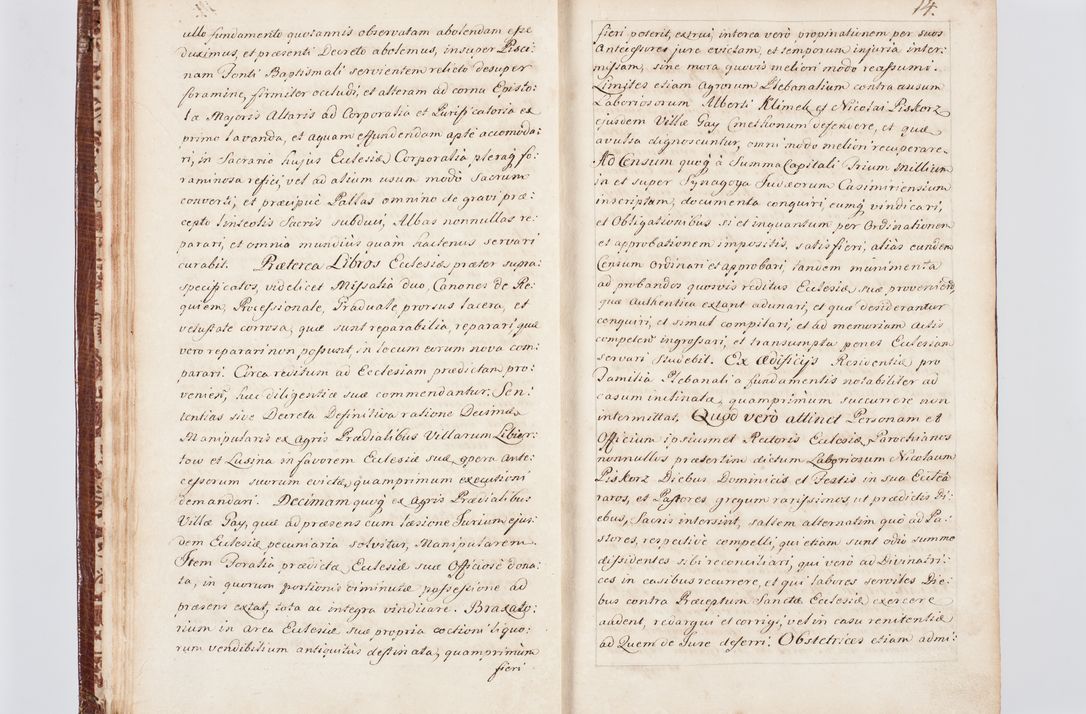 ullo fundamento quotannis observatam abolendam esse
duximus, et præsenti Decreto abolemus, insuper Pisci:
nam Fonti Baptismali servientem relicto desuper
foramine, firmiter occludi, et alteram ad cornu Episto:
læ Majoris Altaris ad Corporalia et Purificatoria ex
primo lavanda, et aquam effundendam apte accomoda:
ri, in Sacrario hujus Ecclesiæ Corporalia pleraq fo:
raminosa refici, vel ad alium usum modò Sacrum
converti, et præcipuè Pallas omnino de gravi præ:
cepto linteolis Sacris subduci, Albas nonnullas re:
parari, et omnia mundiùs quàm hactenus servari
curabit. Præterea Libros Ecclesiæ præter supra:
specificatos, videlicet Missalia duo, Canones de Re:
quiem, Processionale, Graduale prorsus lacera, et
vetustate corrosa, quæ sunt reparabilia, reparari, quæ
vero reparari non possunt, in locum eorum nova com:
parari. Circa reditum ad Ecclesiam prædictam pro:
venien, hæc diligentiæ suæ commendantur. Sen:
tentias sive Decreta Definitiva ratione Decimæ
Manipularis ex Agris Prædialibus Villarum Libier:
tow et Lusina in favorem Ecclesiæ suæ, opera Ante:
cessorum suorum evictæ, quamprimum executioni
demandari. Decimam quoq ex Agris Prædialibus
Villæ Gay, quæ ad præsens cum læsione Jurium ejus:
dem Ecclesiæ pecuniaria solvitur, Manipularem.
Item Foralia prædictæ Ecclesiæ suæ Officiosè dona:
ta, in quorum portionis diminutæ possessione ad
præsens extat, tota ac integra vindicare. Braxato:
rium in area Ecclesiæ suæ propria coctioni liquo:
rum vendibilium antiquitùs destinata, quamprimùm
fieri
14.
fieri poterit, extrui, interea verò propinationem per suos
Antecessores jure evictam, et temporum injuria inter:
missam, sine mora quovis meliori modo reassumi.
Limites etiam Agrorum Plebanalium contra ausum
Laboriosorum Alberti Klimek et Nicolai Piskorz
ejusdem Villæ Gay Cmethonum defendere, et quæ
avulsa dignoscuntur, omni modo meliori recuperare.
Ad Censum quoq à Summa Capitali Trium Millium
in et super Synagoga Judæorum Casimiriensium
inscriptam, documenta conquiri, cumq vindicari,
et Obligationibus si et inquantum per Ordinationem
et approbationem impositis, satisfieri, aliàs eundem
Censum Ordinari et approbari, tandem munimenta
ad probandos quosvis reditus Ecclesiæ suæ provenien
quæ authentica extant adunari, et quæ desiderantur
conquiri, et simul compilari, et ad memoriam Actis
competen ingrossari, et transumpta penes Ecclesiam
servari studebit. Ex Ædificijs Residentiæ pro
Familia Plebanali a fundamentis notabiliter ad
casum inclinatæ, quamprimum succurrere non
intermittat. Quod verò attinet Personam et
Officium ipsiusmet Rectoris Ecclesiæ, Parochianos
nonnullos præsertim dictum Laboriosum Nicolaum
Piskorz Diebus Dominicis et Festis in sua Ecclēa
raros, et Pastores gregum rarissimos, ut prædictis Di:
ebus, Sacris intersint, saltem alternatim quò ad Pa:
stores, respectivè compelli, qui etiam sunt odio summo
dissidentes sibi reconciliari, qui verò ad Divinatri:
ces in casibus recurrere, et qui labores serviles Die:
bus contra Præceptum Sanctæ Ecclesiæ exercere
audent, redargui et corrigi, vel in casu renitentiæ
ad Quem de Jure deferri. Obstetrices etiam admi: